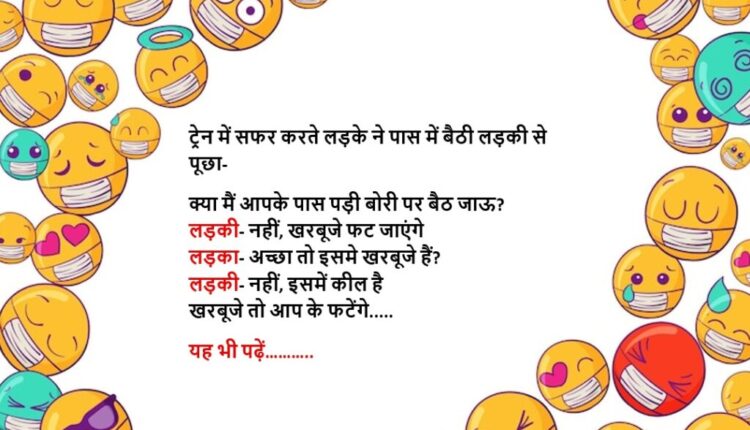 ट्रेन में सफर करते लड़के ने पास में बैठी लड़की से
पूछा-
क्या मैं आपके पास पड़ी बोरी पर बैठ जाऊ?
लड़की- नहीं, खरबूजे फट जाएंगे
लड़का- अच्छा तो इसमे खरबूजे हैं?
लड़की- नहीं, इसमें कील है
खरबूजे तो आप के फटेंगे.....
यह भी पढ़ें...........